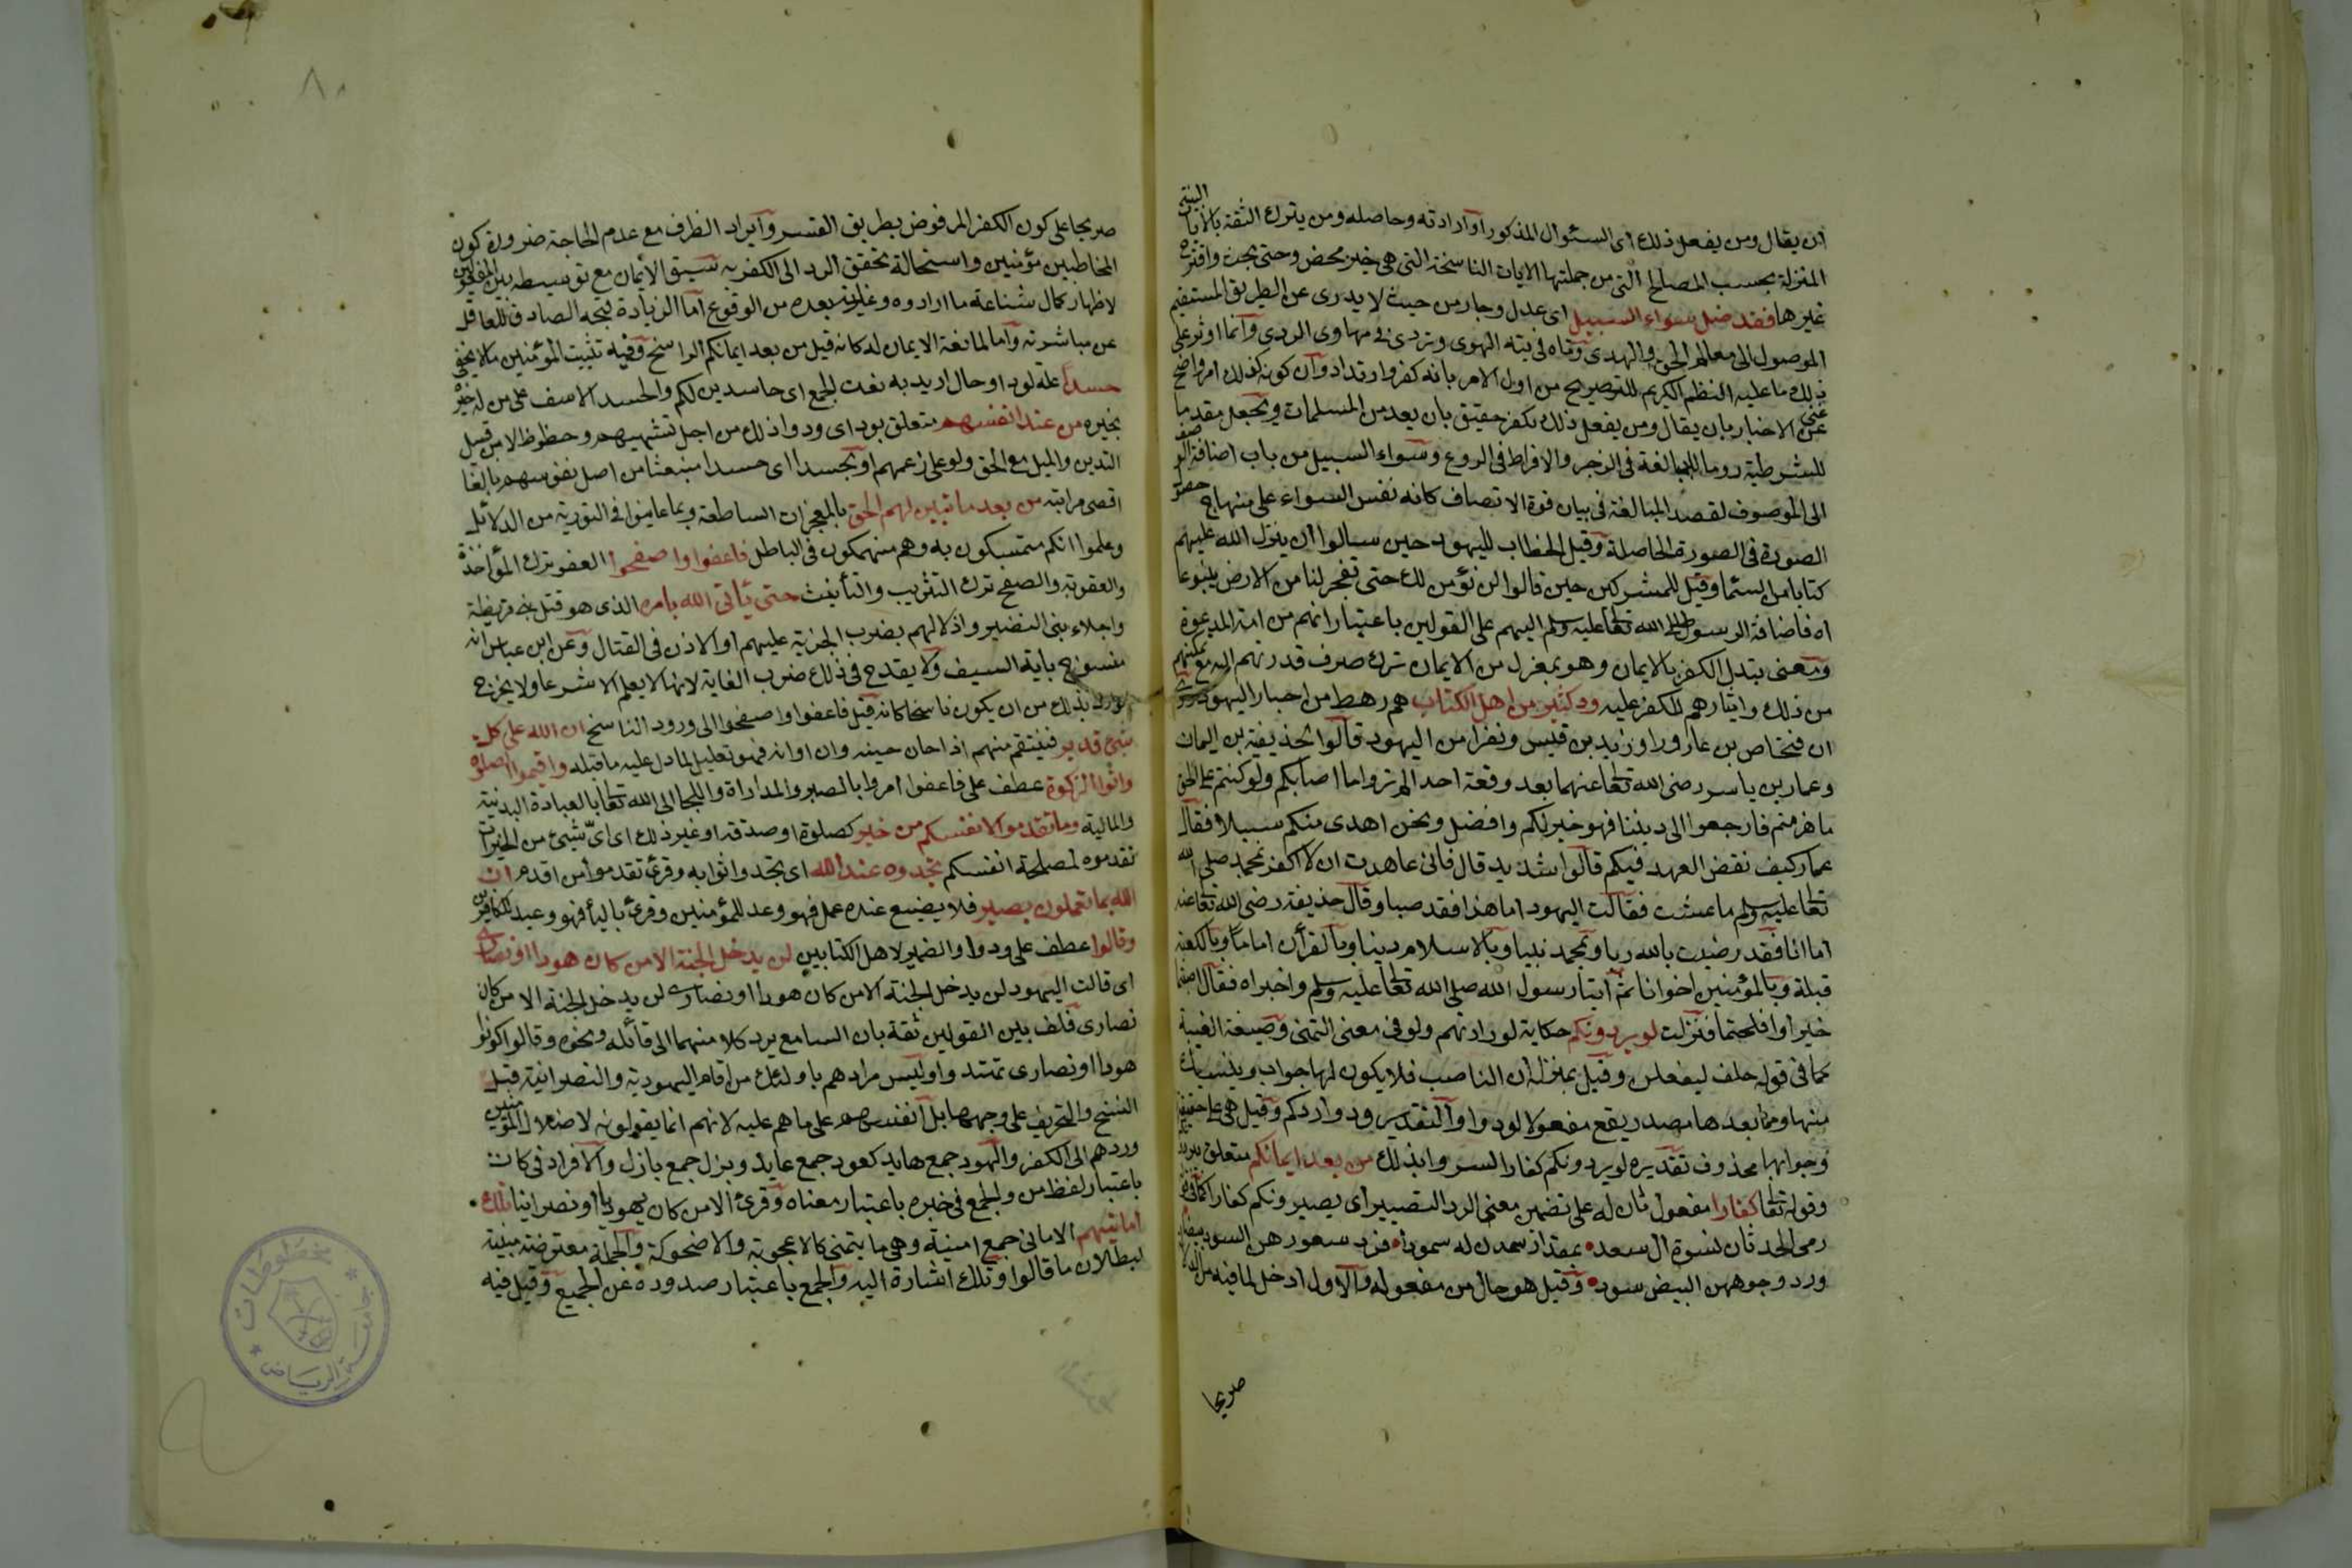 ان يقال ومن يفعل ذلك اى السئوال المذكور او ارادته وحاصله ومن يترك الثقة بالايات البينة
المنزلة بحسب المصالح التى من جملتها الايات الناسخة التى هى خير محض وحتى بحت واقترح
غيرها فقد ضل سواء السبيل اى عدل وجار من حيث لا يدرى عن الطريق المستقيم
الموصول الى معالم الحق والهدى وتاه فى تيه الهوى وتردى فى مهاوى الردى وانما اوثر على
ذلك ما عليه النظم الكريم للتصريح من اول الامر بانه كفر وارتداد وان كونه كذلك امر واضح
غنى عن الاخبار بان يقال ومن يفعل ذلك يكفر حقيق بان يعد من المسلمات ويجعل مقدما
للشرطية روما للمبالغة فى الزجر والافراط فى الردع وسواء السبيل من باب اضافة الوصف
الى الموصوف لقصد المبالغة فى بيان قوة الاتصاف كانه نفس السواء على منهاج حصول
الصورة فى الصورة الحاصلة وقيل الخطاب لليهود حين سالوا ان ينزل الله عليهم
كتابا من السماء وقيل للمشركين حين قالوا لن نؤمن لك حتى تفجر لنا من الارض ينبوعا
اه فاضافة الرسول صلى الله تعالى عليه وسلم اليهم على القولين باعتبار انهم من امة الدعوة
ومعنى تبدل الكفر بالايمان وهو بمعزل من الايمان ترك صرف قدرتهم اليه مع تمكنهم
من ذلك وايثارهم للكفر عليه ود كثير من اهل الكتاب هم رهط من احبار اليهود روى
ان فنحاص بن عازورا وزيد بن قيس ونفرا من اليهود قالوا لحذيفة بن اليمان
وعمار بن ياسر رضى الله تعالى عنهما بعد وقعة احد الم تروا ما اصابكم ولو كنتم على الحق
ما هزمتم فارجعوا الى ديننا فهو خير لكم وافضل ونحن اهدى منكم سبيلا فقال
عمار كيف نقض العهد فيكم قالوا شديد قال فانى عاهدت ان لا اكفر بمحمد صلى الله
تعالى عليه وسلم ما عشت فقالت اليهود اما هذا فقد صبا وقال حذيفة رضى الله تعالى عنه
اما انا فقد رضيت بالله ربا وبمحمد نبيا وبالاسلام دينا وبالقرأن اماما وبالكعبة
قبلة وبالمؤمنين اخوانا ثم أتيا رسول الله صلى الله تعالى عليه وسلم واخبراه فقال اصبتما
خيرا وافلحتما فنزلت لو يردونكم حكاية لودادتهم ولو فى معنى التمنى وصيغة الغيبة
كما فى قوله حلف ليفعلن وقيل بمنزلة ان الناصب فلا يكون لها جواب وينسبك
منها ومما بعدها مصدر يقع مفعولا لودوا والتقدير ودوا ردكم وقيل هى على حقيقتها
وجوابها محذوف تقديره لو يردونكم كفارا لسروا بذلك من بعد ايمانكم متعلق بيردونكم
وقوله تعالى كفارا مفعول ثان له على تضمين معنى الرد التصيير اى يصيرونكم كفارا كما فى قوله
رمى الحدثان نسوة ال سعد • بمقدار سمدن له سمودا • فرد شعورهن السود بيضا
ورد وجوههن البيض سودا • وقيل هو حال من مفعوله والاول ادخل لما فيه من الدلالة
صريحا
صريحا على كون الكفر المرفوض بطريق القسر وايراد الظرف مع عدم الحاجة ضرورة كون
المخاطبين مؤمنين واستحالة تحقق الرد الى الكفر به سبق الأيمان مع توسيطه بين المفعولين
لاظهار كمال شناعة ما ارادوه وغاية بعده من الوقوع اما الزيادة قبحه الصادف للعاقل
عن مباشرته واما لممانعة الايمان له كانه قيل من بعد ايمانكم الراسخ وفيه تثبيت المؤمنين ما لا يخفى
حسدا علة لود او حال اريد به نعت الجمع اى حاسدين لكم والحسد الاسف على من له خير
بخيره من عند انفسهم متعلق بود اى ودوا ذلك من اجل تشهيهم وحظوظ لا من قبل
التدين والميل مع الحق ولو على زعمهم او بحسدا اى حسدا منبعثا من اصل نفوسهم بالغا
اقصى مراتبه من بعد ما تبين لهم الحق بالمعجزات الساطعة وبما عاينوا فى التورية من الدلائل
وعلموا انكم متمسكون به وهم منهمكون فى الباطل فاعفوا واصفحوا العفو ترك المؤاخذة
والعقوبة والصفح ترك التثريب والتأنيث حتى يأتى الله بامره الذى هو قتل بنى قريظة
واجلاء بنى النضير واذلالهم بضرب الجزية عليهم او الاذن فى القتال وعن ابن عباس انه
منسوخ باية السيف ولا يقدح فى ذلك ضرب الغاية لانها لا يعلم الا شرعا ولا يخرج
الوارد بذلك من ان يكون ناسخا كانه قيل فاعفوا واصفحوا الى ورود الناسخ ان الله على كل
شئ قدير فينتقم منهم اذا حان حينه وان اوانه فهو تعليل لما دل عليه ما قبله واقيموا الصلوة
واتوا الزكوة عطف على فاعفوا امروا بالصبر والمداراة واللجا الى الله تعالى بالعبادة البدنية
والمالية وما تقدموا لانفسكم من خير كصلوة او صدقة او غير ذلك اى اىّ شيئ من الخيرات
تقدموه لمصلحة انفسكم تجدوه عند الله اى تجدوا ثوابه وقرئ تقدموا من اقدم ان
الله بما تعملون بصير فلا يضيع عنده عمل فهو وعد للمؤمنين وقرئ بالياء فهو وعيد للكافرين
وقالوا عطف على ودوا والضمير لاهل الكتابين لن يدخل الجنة الا من كان هودا او نصارى
اى قالت اليهود لن يدخل الجنة الا من كان هودا او نصارى لن يدخل الجنة الا من كان
نصارى فلف بين القولين ثقة بان السامع يرد كلا منهما الى قائله ونحوه وقالوا كونوا
هودا او نصارى تهتدوا وليس مرادهم باولئك من اقام اليهودية والنصرانية قبل
النسخ والتحريف على وجهها بل انفسهم على ما هم عليه لانهم انما يقولونه لاضلال المؤمنين
وردهم الى الكفر والهود جمع هايد كعود جمع عايد وبزل جمع بازل والافراد فى كان
باعتبار لفظ من والجمع فى خبره باعتبار معناه وقرئ الا من كان يهوديا او نصرانيا تلك
امانيهم الامانى جمع امنية وهى ما يتمنى كالاعجوبة والاضحوكة والجملة معترضة مبينة
لبطلان ما قالوا وتلك اشارة اليه والجمع باعتبار صدوره عن الجميع وقيل فيه
٨٠
جامعة الرياض
مخطوطات